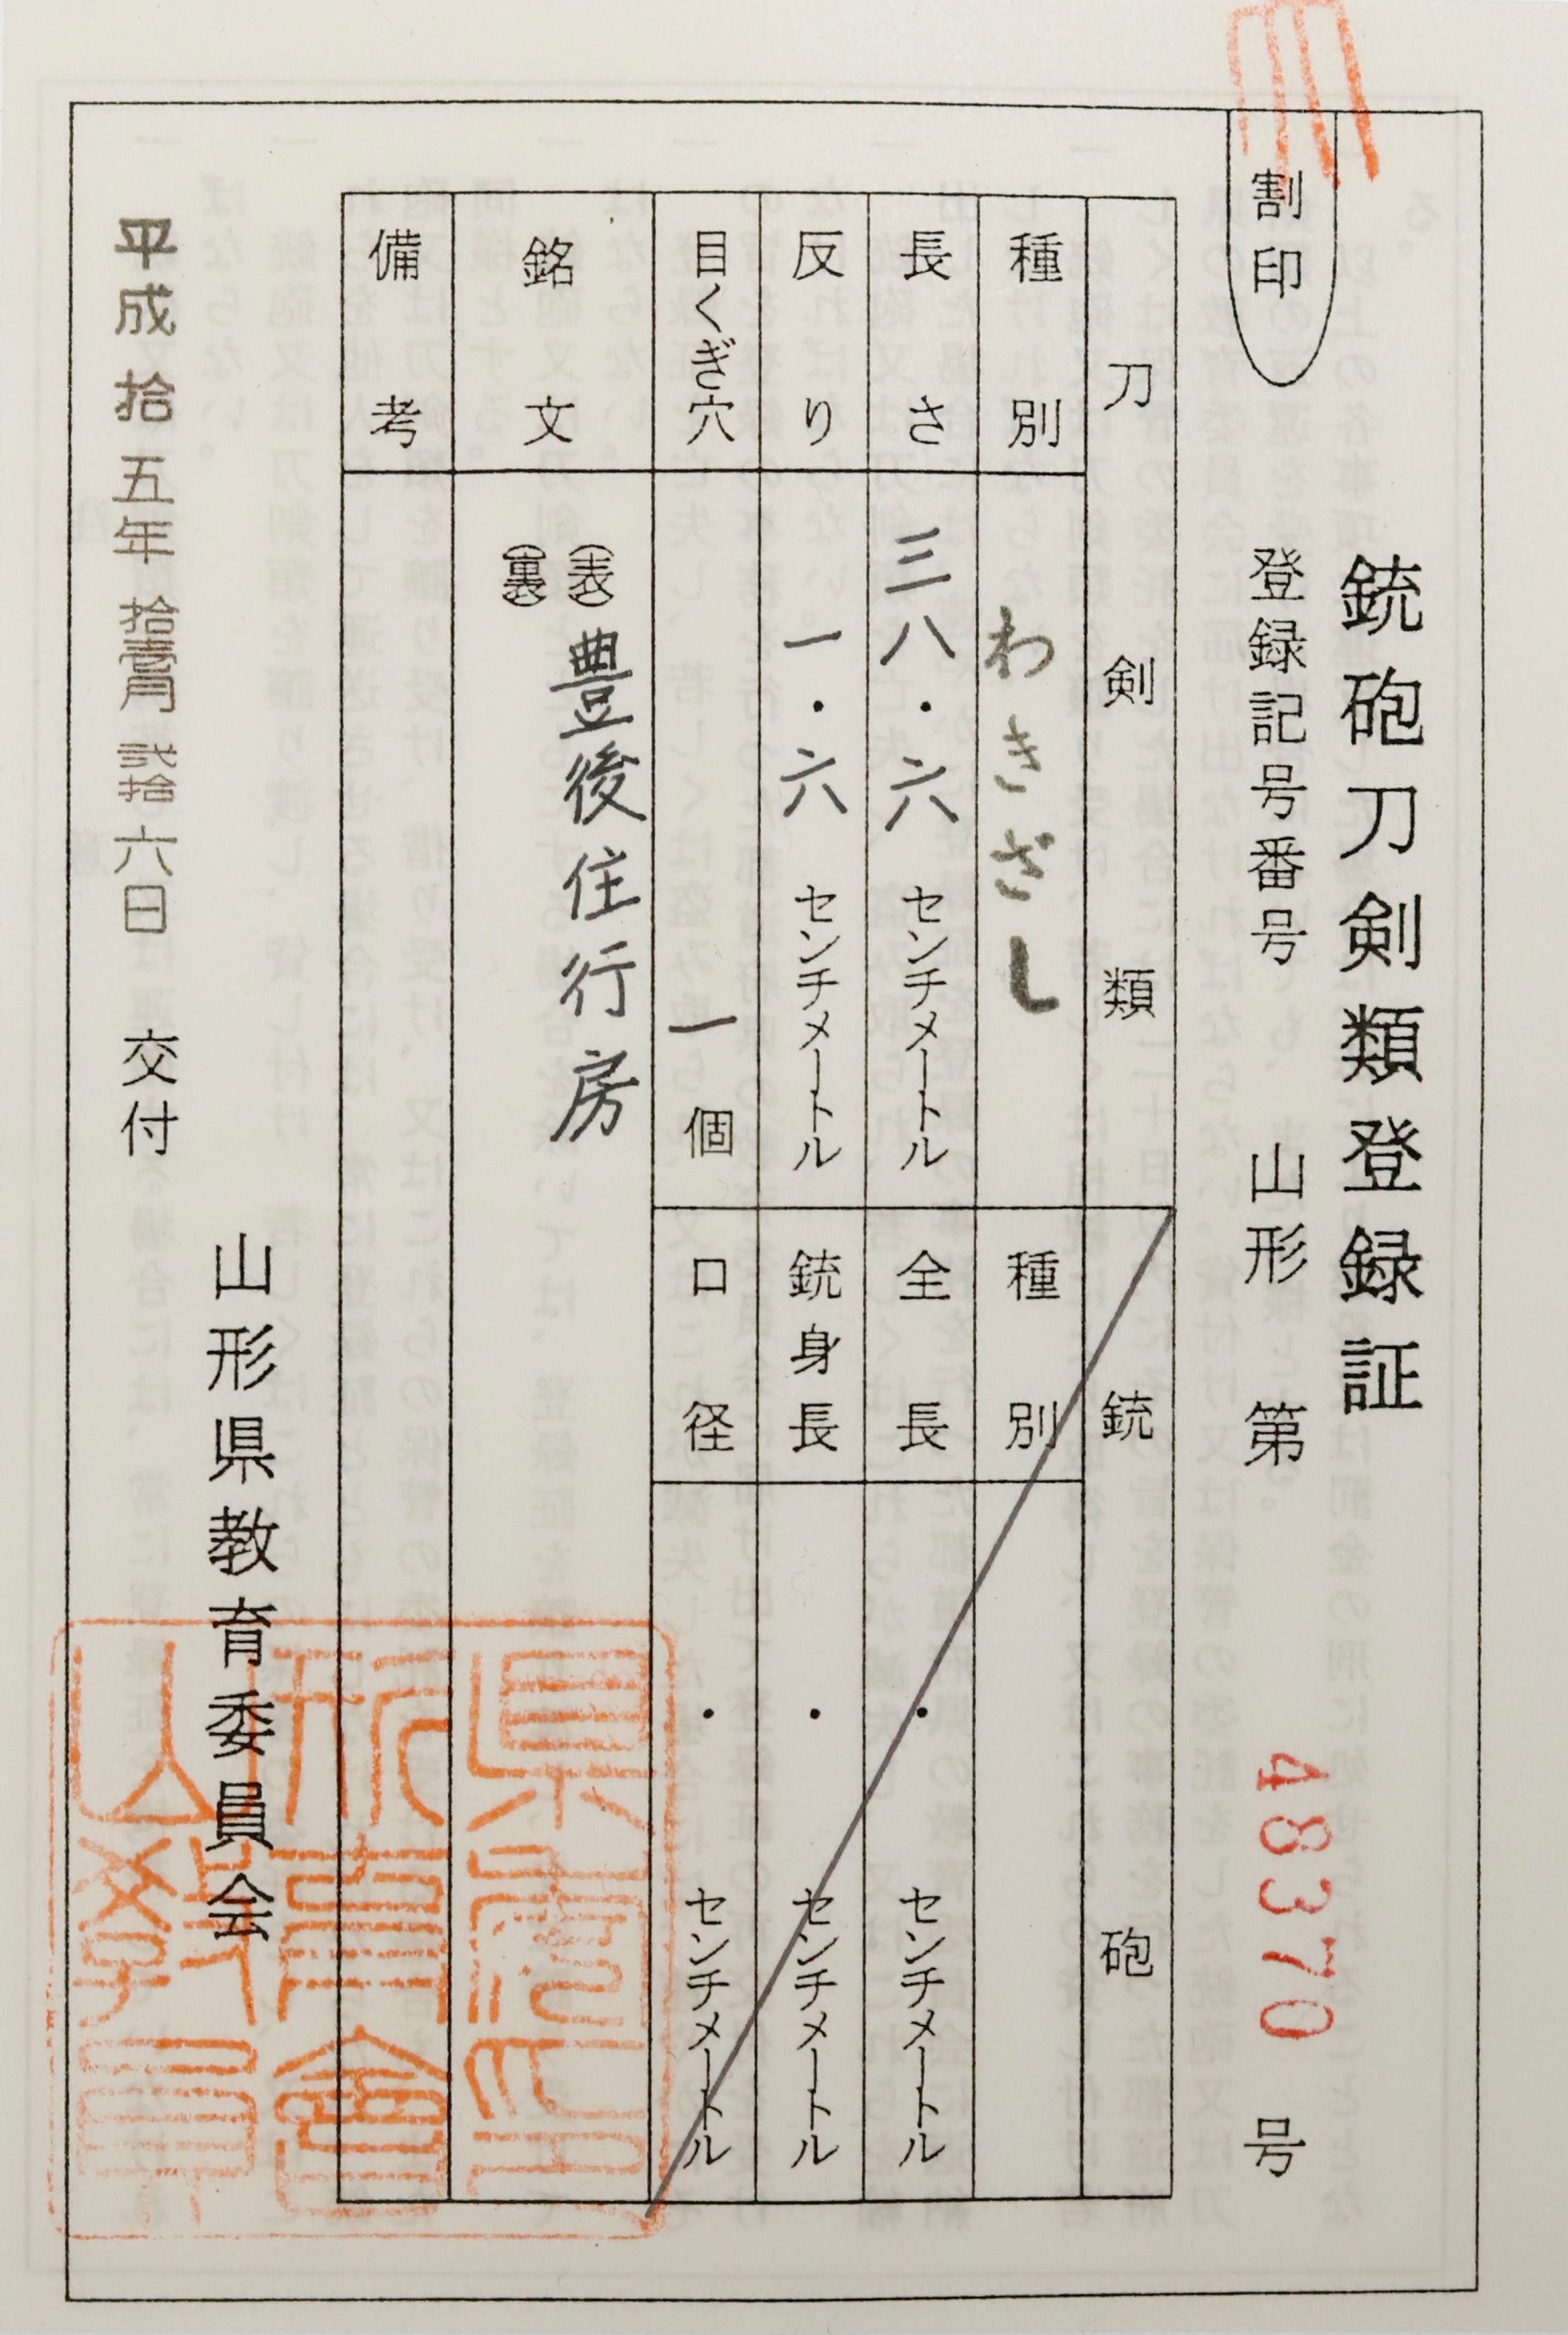 銃砲刀剣類登録証
割印
登録記号番号 山形 第 48370 号
刀剣類
種別 わきざし
長さ 三八・六 センチメートル
反り 一・六 センチメートル
目くぎ穴 一 個
銃砲
種別
全長 ・ センチメートル
銃身長 ・ センチメートル
口径 ・ センチメートル
銘文 (表) 豊後住行房
(裏)
備考
山形県教育委員会
平成拾五年拾壹月弐拾六日 交付